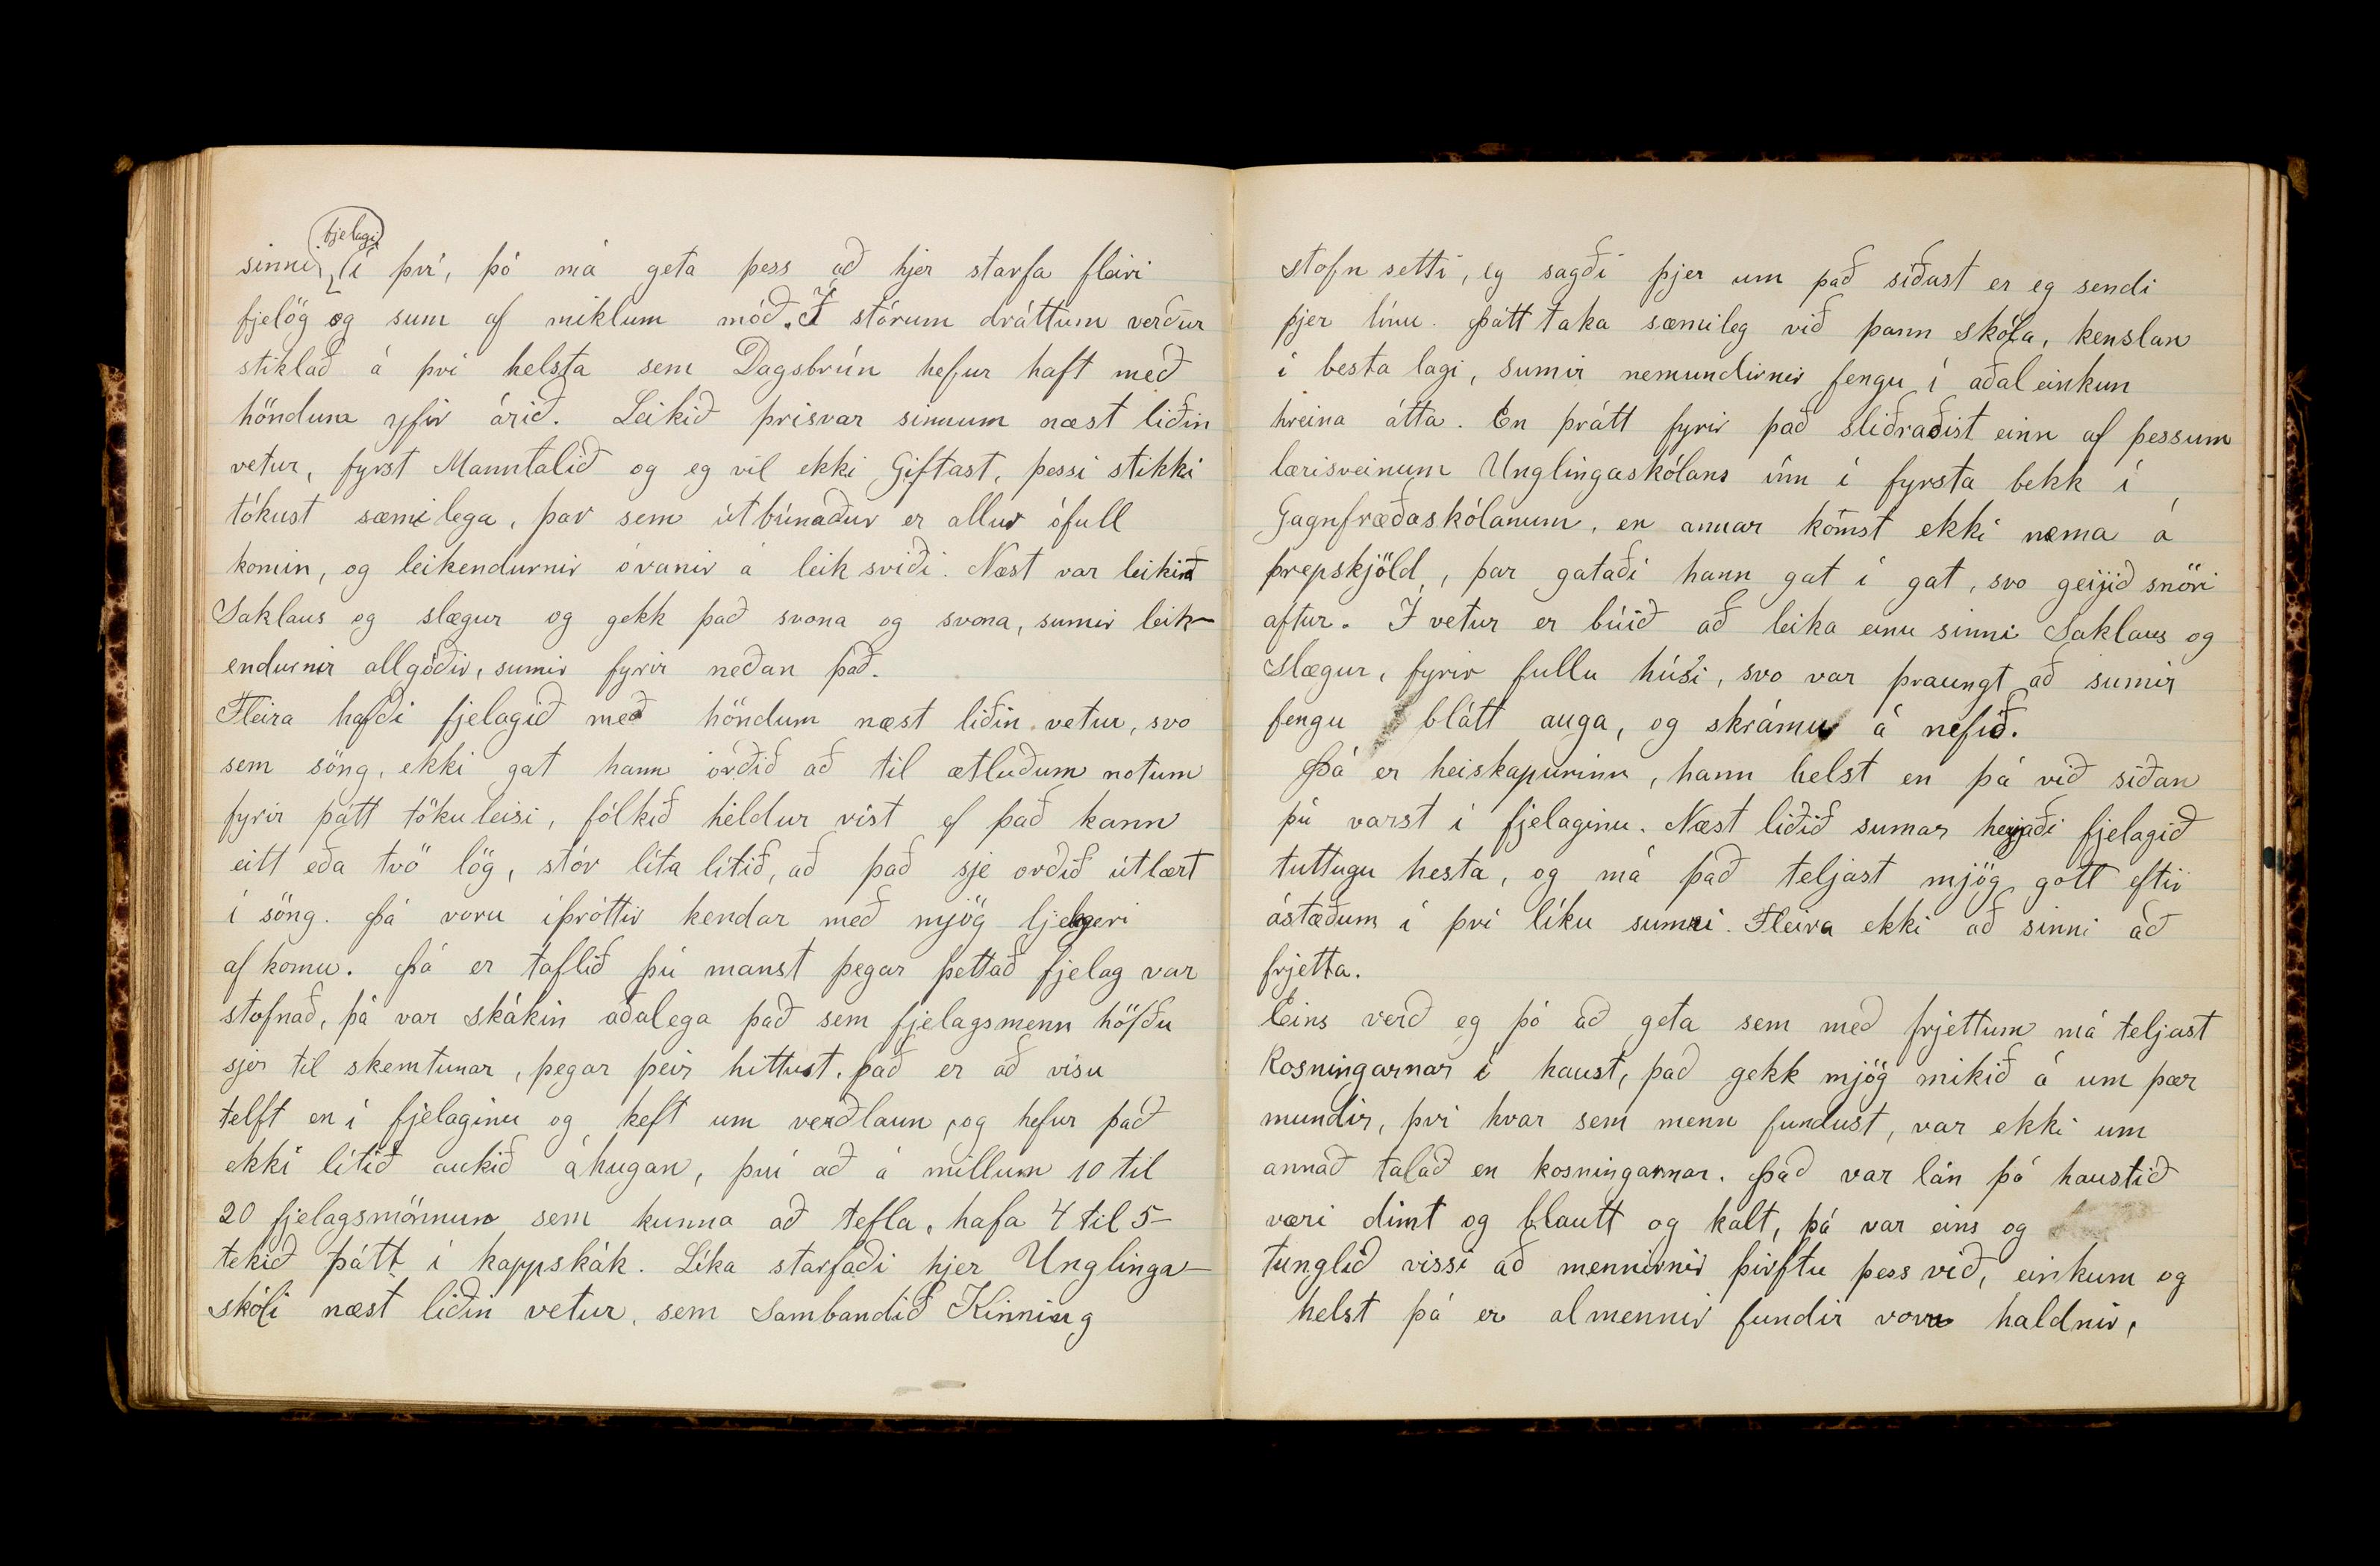 fjelagi
sinni, í því, þó má geta þess að hjer starfa fleiri
fjelög og sum af miklum móð. Í stórum dráttum verður
stiklað á því helsta sem Dagsbrún hefur haft með
höndum yfir árið. Leikið þrisvar sinnum næst liðin
vetur, fyrst Manntalið og eg vil ekki Giftast, þessi stikki
tókust sæmilega, þar sem útbúnaður er allur ófull
komin, og leikendurnir óvanir á leik sviði. Næst var leikið
Saklaus og slægur og gekk það svona og svona, sumir leik-
endurnir allgóðir, sumir fyrir neðan það.
Fleira hafði fjelagið með höndum næst liðin vetur, svo
sem söng, ekki gat hann orðið að til ætluðum notum
fyrir þátt töku leisi, fólkið heldur vist ef það kann
eitt eða tvö lög, stór lita litið, að það sje orðið útlært
í söng. Þá voru íþróttir kendar með mjög ljelegri
af komu. Þá er taflið þú manst þegar þettað fjelag var
stofnað, þá var skákin aðalega það sem fjelagsmenn höfðu
sjer til skemtunar, þegar þeir hittust. það er að vísu
telft en í fjelaginu og keft um verðlaun, og hefur það
ekki lítið aukið áhugan, því að á millum 10 til
20 fjelagsmönnum sem kunna að tefla, hafa 4 til 5-
tekið þátt í kappskák. Líka starfaði hjer Unglinga-
skóli næst liðin vetur, sem Sambandið Kinning
stofn setti, eg sagði þjer um það síðast er eg sendi
þjer línu. Þátt taka sæmileg við þann skóla, kenslan
í besta lagi, sumir nemundirnir fengu í aðal einkun
hreina átta. En þrátt fyrir það sliðraðist einn af þessum
lærisveinum Unglingaskólans inn í fyrsta bekk í
Gagnfræðaskólanum, en annar komst ekki nema á
þrepskjöld, þar gataði hann gat í gat, svo geijið snöri
aftur. Í vetur er búið að leika einu sinni Saklaus og
Slægur, fyrir fullu húsi, svo var þraungt að sumir
fengu blátt auga, og skrámur á nefið.
Þá er heiskapurinn, hann helst en þá við síðan
þú varst í fjelaginu. Næst liðið sumar heyjaði fjelagið
tuttugu hesta, og má það teljast mjög gott eftir
ástæðum í því líku sumri. Fleira ekki að sinni að
frjetta.
Eins verð eg þó að geta sem með frjettum má teljast
Kosningarnar í haust, það gekk mjög mikið á um þær
mundir, því hvar sem menn fundust, var ekki um
annað talað en kosningarnar. Það var lán þó haustið
væri dimt og blautt og kalt, þá var eins og
tunglið vissi að mennirnir þirftu þess við, einkum og
helst þá er almennir fundir voru haldnir,